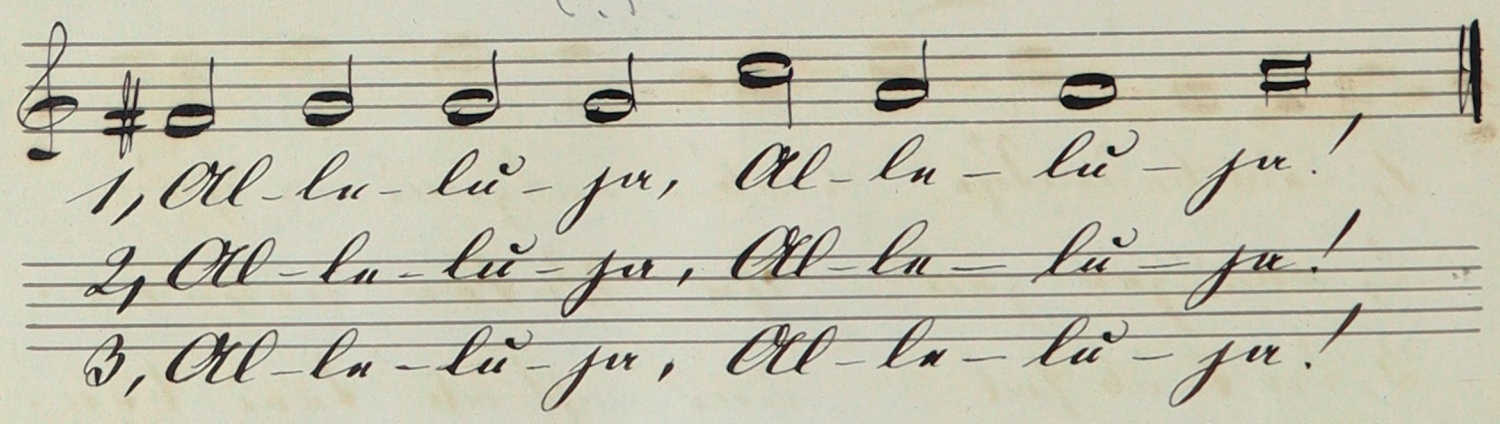 1, Al-le-lu-ja, Al-le-lu-ja!
2, Al-le-lu-ja, Al-le-lu-ja!
3, Al-le-lu-ja, Al-le-lu-ja!